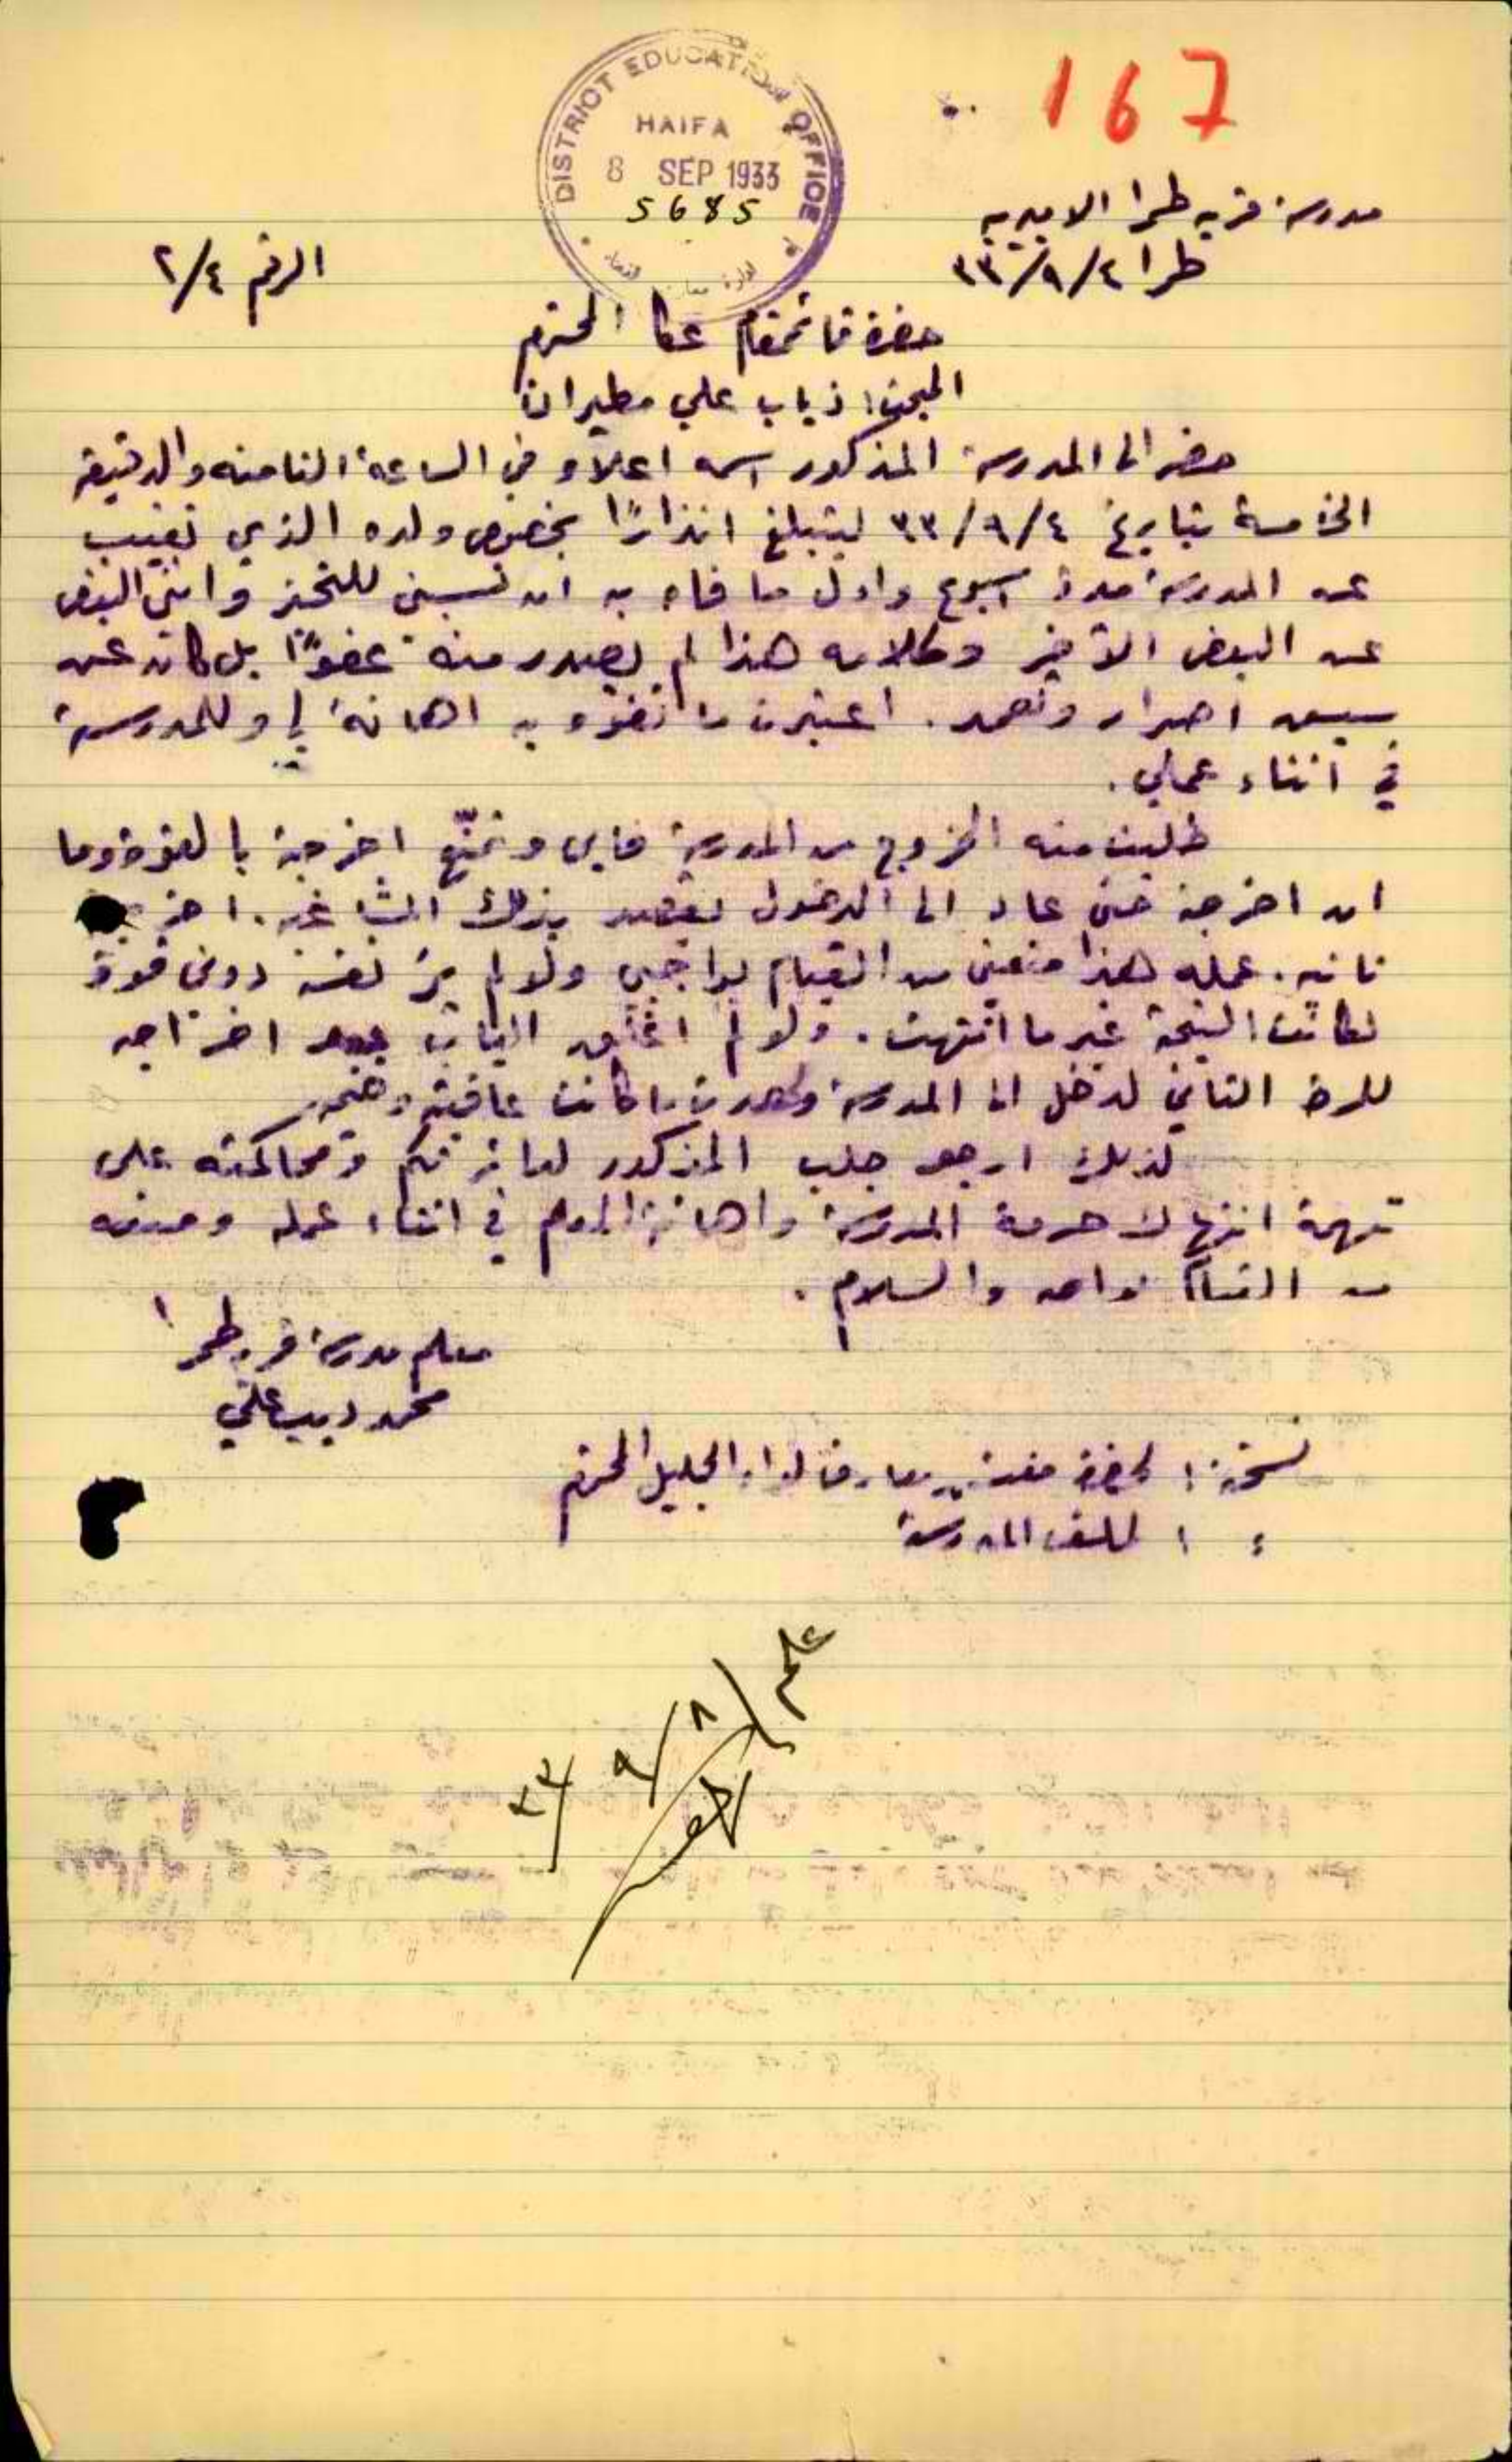 167
DISTRICT EDUCATION OFFICE
HAIFA
8 SEP 1933
5685
مدرسة قرية طمرا الاميرية
طمرا ٤/٩/٣٣
الرقم ٢/٤
حضرة قائمقام عكا المحترم
المبحث: ذياب علي مطيران
حضر الى المدرسة المذكور اسمه اعلاه في الساعة الثامنه والدقيقة
الخامسة بتاريخ ٤/٩/٣٣ ليتبلغ انذارًا بخصوص ولده الذي تغيب
عن المدرسة مدة اسبوع واول ما فاه به ان نسبني للتحيز وانني البعض
عن البعض الآخر وكلامه هذا لم يصدر منه عفوًا بل كان عن
سبيق اصرار وتعمد. اعتبرت ما تفوه به اهانة لي وللمدرسة
في اثناء عملي.
طلبت منه الخروج من المدرسة فابى وتمنّع اخرجته بالقوة وما
ان اخرجته حتى عاد الى الدخول يقصد بذلك المشاغبه. اخرجته
ثانيه. عمله هذا منعني من القيام بواجبي ولو لم يرَ نفسه دوني قوة
لكانت النتيجة غير ما انتهت. ولو لم اغلق الباب بعد اخراجه
للمرة الثاني لدخل الى المدرسة ما كانت عاقبته وخيمه
لذلك ارجو جلب المذكور لعا محاكمته على
تهمة انتهاك حرمة المدرسة واهانة المعلم في اثناء عمله ومنعه
من القيام بواجبه والسلام.
معلم مدرسة قرية طمرا
محمد ديب علي
نسخة: لحضرة مفتش معارف لواء الجليل المحترم
: : لملف المدرسة
٨/٩/٣٣